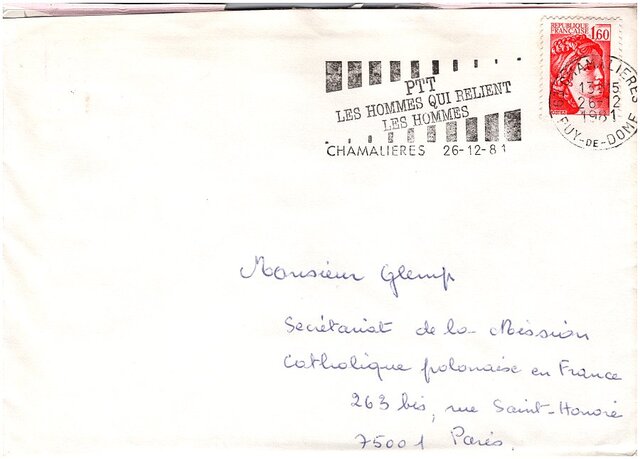 REPUBLIQUE
FRANÇAISE 1,60
PTT
LES HOMMES QUI RELIENT
LES HOMMES
CHAMALIERES 26-12-81
CHAMALIERES
26-12
1981
PUY-DE-DOME
Monsieur Glemp
Secrétariat de la Mission
Catholique polonaise en France
263 bis, rue Saint-Honoré
75001 Paris.